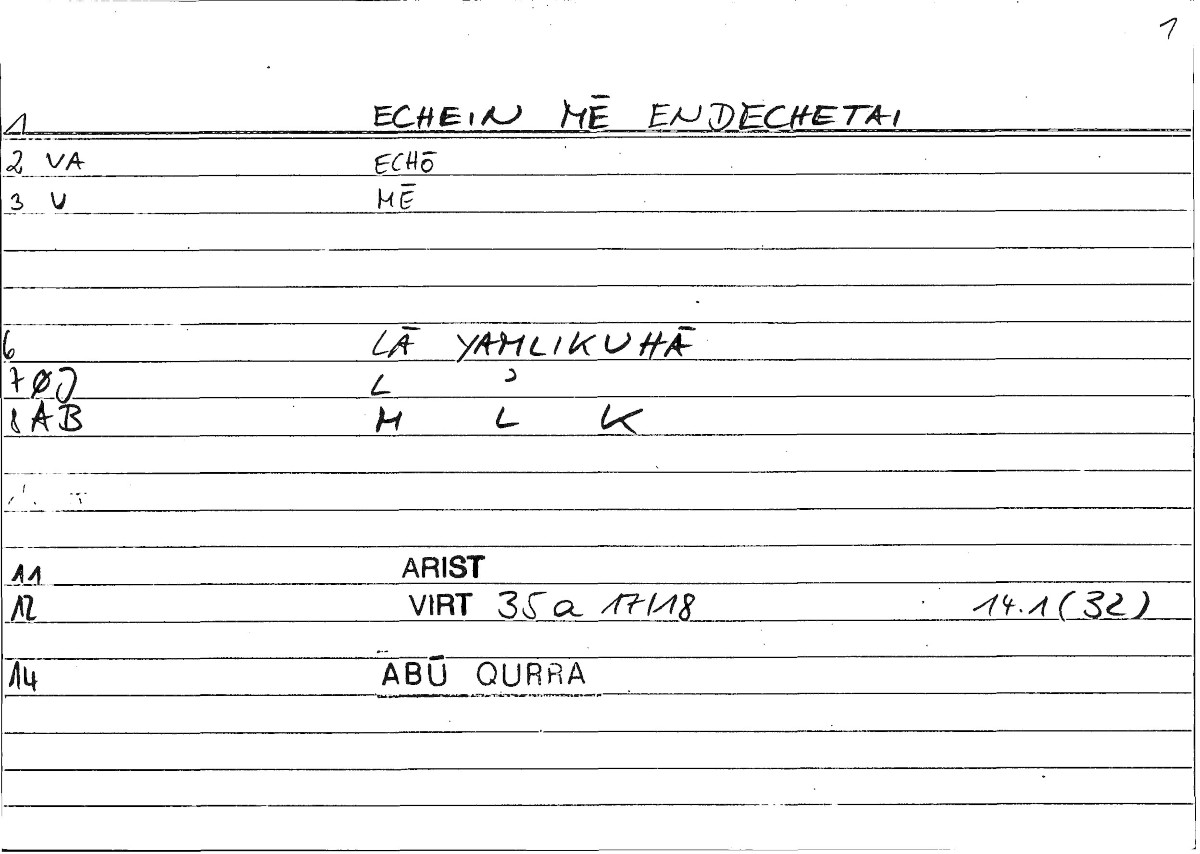 1
1 ECHEIN MĒ ENDECHETAI
2 VA ECHŌ
3 V MĒ
6 LĀ YAMLIKUHĀ
7 ØJ L ʾ
8 AB M L K
11 ARIST
12 VIRT 35a 17/18 14.1(32)
14 ABŪ QURRA